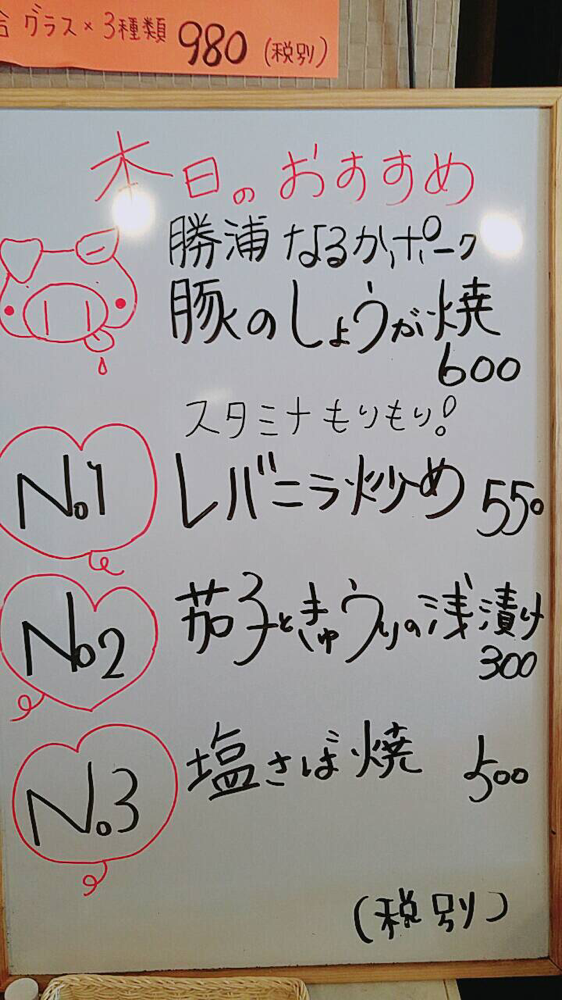 グラス×3種類 980 (税別)
本日のおすすめ
勝浦 なるかポーク
豚のしょうが焼
600
スタミナもりもり!
No.1 レバニラ炒め 550
No.2 茄子ときゅうりの浅漬け
300
No.3 塩さば焼 500
(税別)